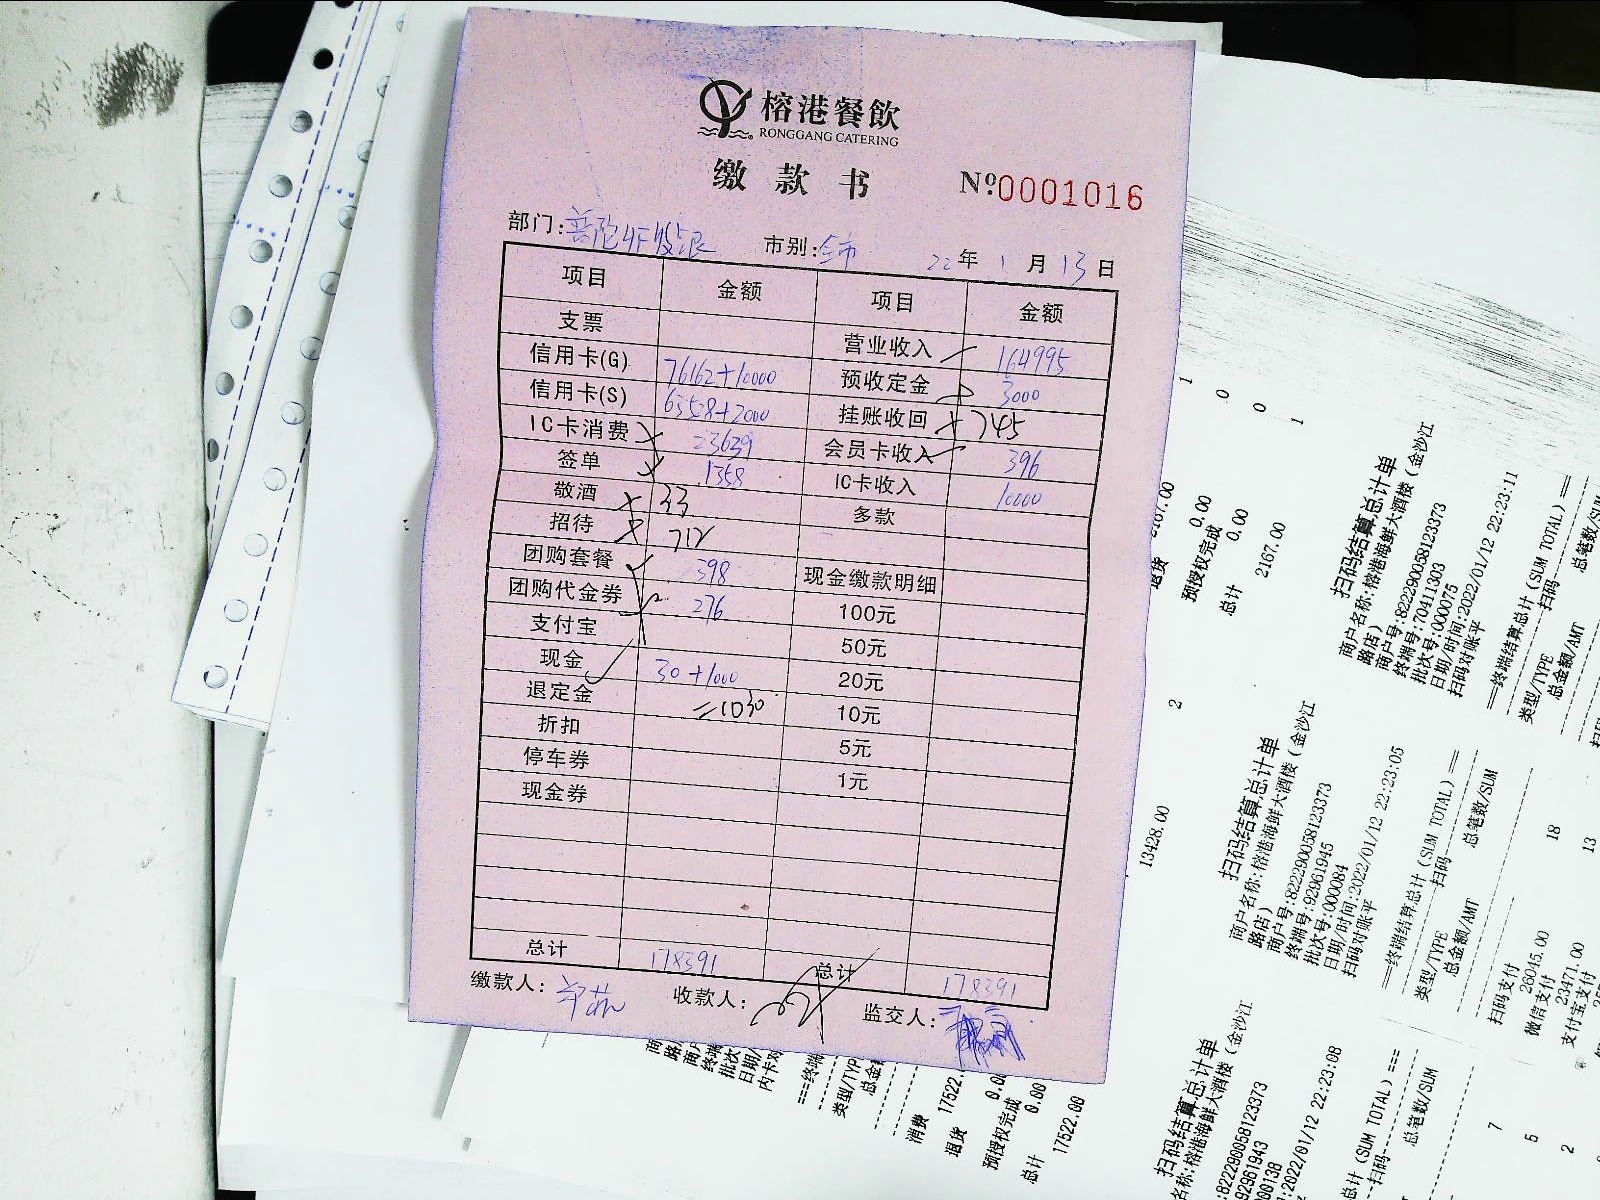 榕港餐飲
RONGGANG CATERING
缴款书
Nº:0001016
部门:普陀4F 市别:全市 22年1月13日
项目 金额 项目 金额
支票 营业收入 164995
信用卡(G) 76162+10000 预收定金 3000
信用卡(S) 挂账收回 745
IC卡消费 23639 会员卡收入 396
签单 1358 IC卡收入 10000
敬酒 33 多款
招待 712
团购套餐 398 现金缴款明细
团购代金券 276 100元
支付宝 50元
现金 30+1000 20元
退定金 =1030 10元
折扣 5元
停车券 1元
现金券
总计 178391 总计 178391
缴款人: 收款人: 监交人:
1
0
0
1
退货 2167.00
预授权完成 0.00
0.00
总计 2167.00
扫码结算总计单
商户名称:榕港海鲜大酒楼(金沙江
路店)
商户号:822290058123373
终端号:70411303
批次号:000075
日期/时间:2022/01/12 22:23:11
扫码对账平
==终端结算总计(SUM TOTAL)==
扫码
类型/TYPE 总笔数/SUM
总金额/AMT
2
13428.00
扫码结算总计单
商户名称:榕港海鲜大酒楼(金沙江
路店)
商户号:822290058123373
终端号:92961945
批次号:000084
日期/时间:2022/01/12 22:23:05
扫码对账平
==终端结算总计(SUM TOTAL)==
扫码
类型/TYPE 总笔数/SUM
总金额/AMT
扫码支付 18
26045.00
微信支付 13
23471.00
支付宝支付
扫码结算总计单
名称:榕港海鲜大酒楼(金沙江
:822290058123373
92961943
000138
:2022/01/12 22:23:08
总计(SUM TOTAL)===
扫码
总笔数/SUM
7
5
2
商户
终端
批次
日期/
内卡对
===终端
类型/TYP
总金额
消费 17522.
退货 0.00
预授权完成 0.00
总计 17522.00